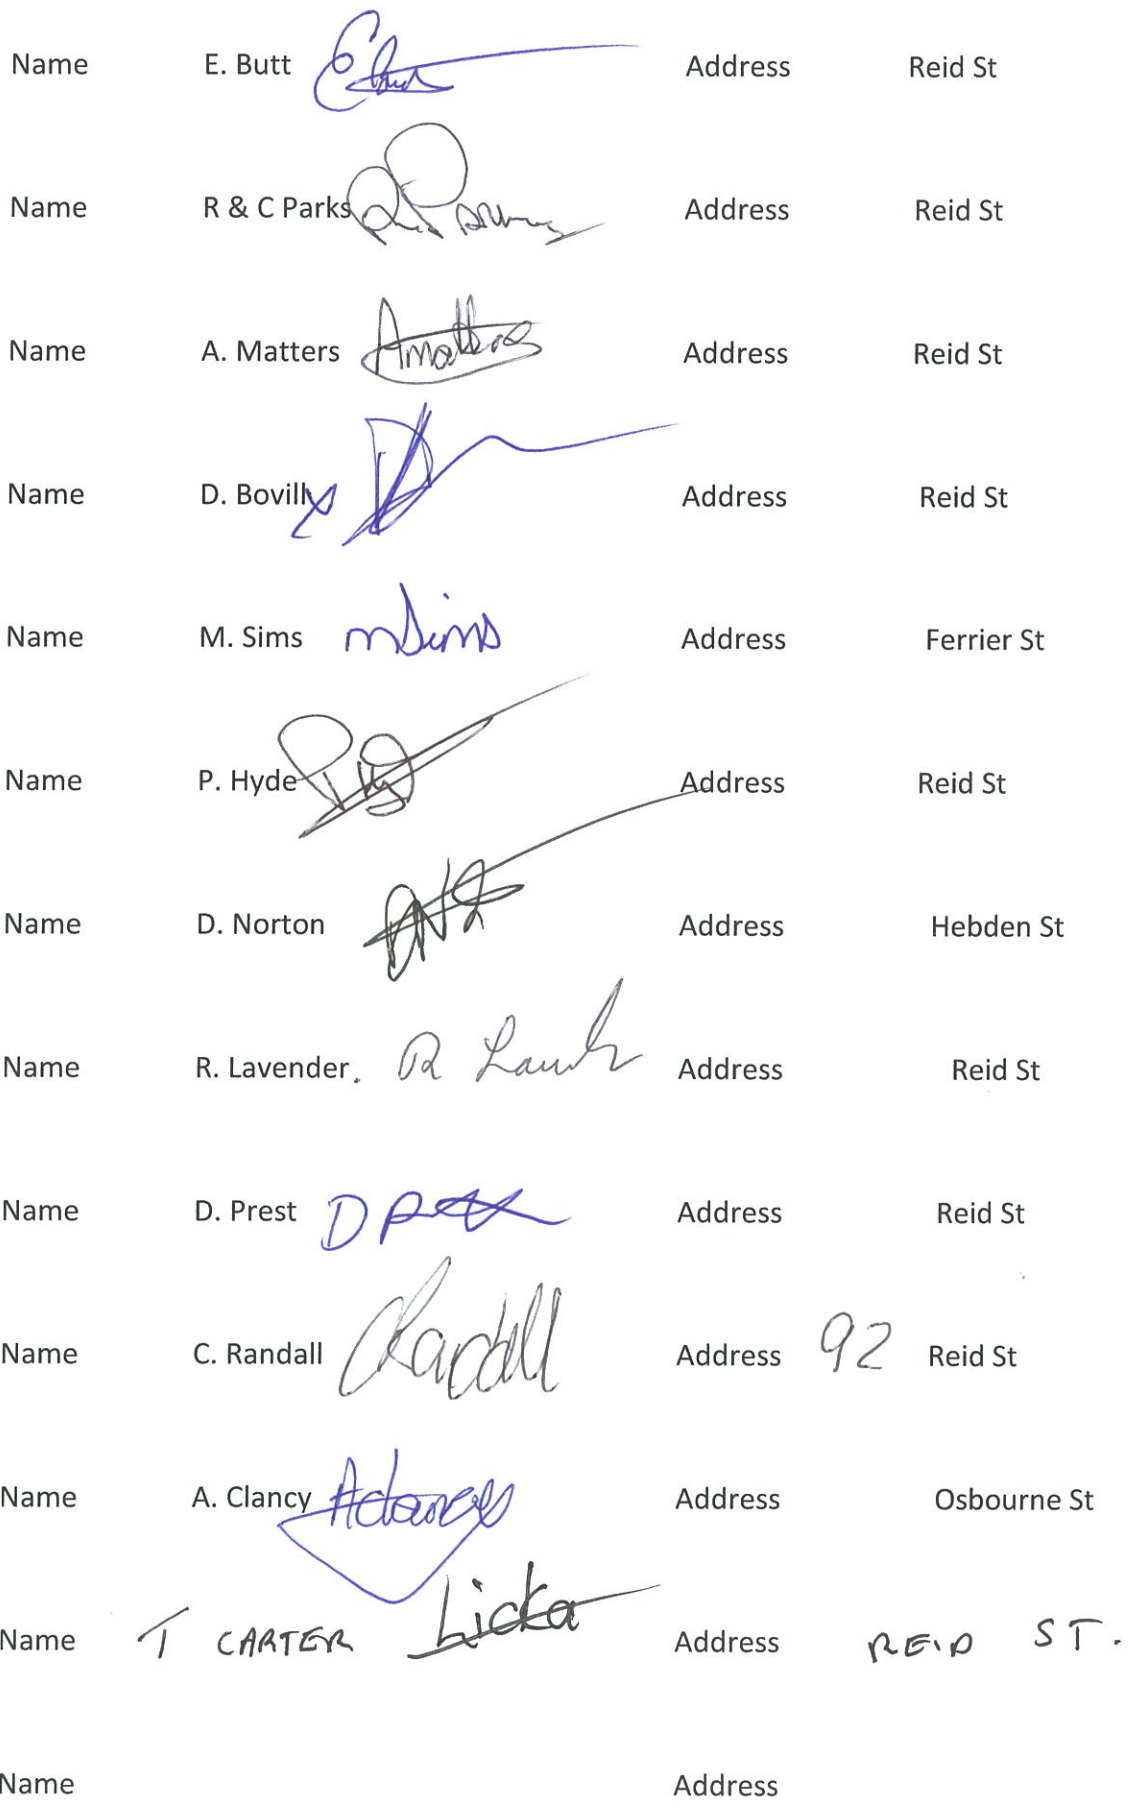 Name E. Butt Address Reid St
Name R & C Parks Address Reid St
Name A. Matters Amatters Address Reid St
Name D. Bovill Address Reid St
Name M. Sims mSims Address Ferrier St
Name P. Hyde Address Reid St
Name D. Norton Address Hebden St
Name R. Lavender. R Address Reid St
Name D. Prest D Address Reid St
Name C. Randall CRandall Address 92 Reid St
Name A. Clancy Address Osbourne St
Name T CARTER Address REID ST.
Name Address